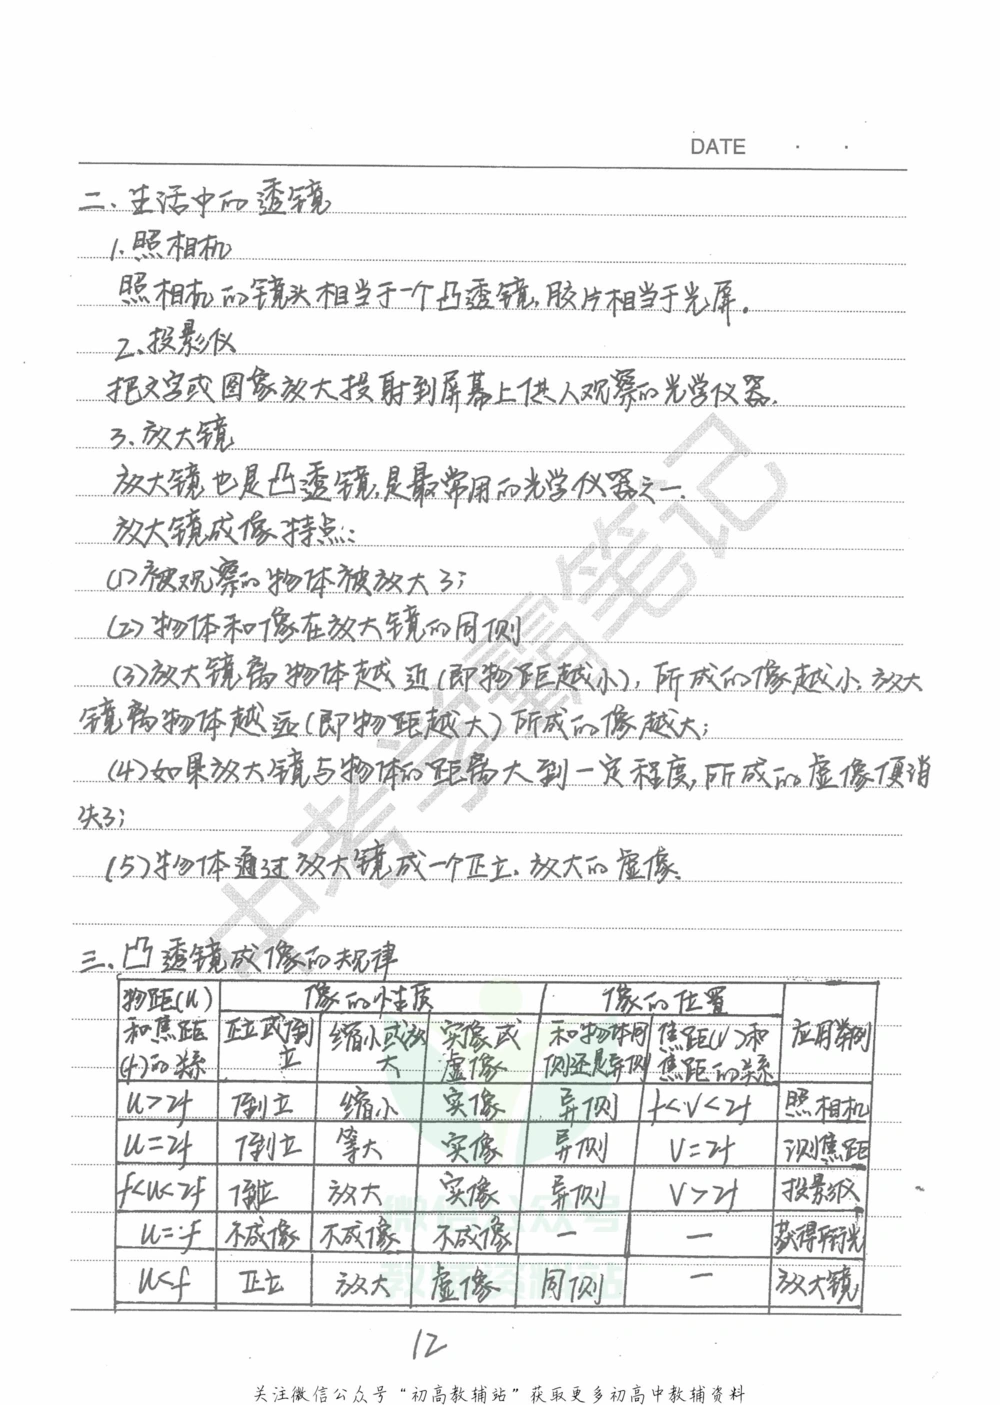 DATE · ·
二、生活中的透镜
1.照相机
照相机的镜头相当于一个凸透镜,胶片相当于光屏。
2.投影仪
把文字或图像放大投射到屏幕上供人观察的光学仪器.
3.放大镜
放大镜也是凸透镜,是最常用的光学仪器之一.
放大镜成像特点:
(1)被观察的物体被放大了;
(2)物体和像在放大镜的同侧
(3)放大镜离物体越近(即物距越小),所成的像越小,放大
镜离物体越远(即物距越大)所成的像越大;
(4)如果放大镜与物体的距离大到一定程度,所成的虚像便消
失了;
(5)物体通过放大镜成一个正立、放大的虚像.
三、凸透镜成像的规律
物距(u)和焦距(f)的关系 像的性质 像的位置 应用举例
正立或倒立 缩小或放大 实像或虚像 和物体同侧还是异侧 焦距(v)和焦距的关系
u>2f 倒立 缩小 实像 异侧 f<v<2f 照相机
u=2f 倒立 等大 实像 异侧 v=2f 测焦距
f<u<2f 倒立 放大 实像 异侧 v>2f 投影仪
u=f 不成像 不成像 不成像 — — 获得平行光
u<f 正立 放大 虚像 同侧 — 放大镜
12
关注微信公众号“初高教辅站”获取更多初高中教辅资料
中考学霸笔记
微信公众号
教辅资料站